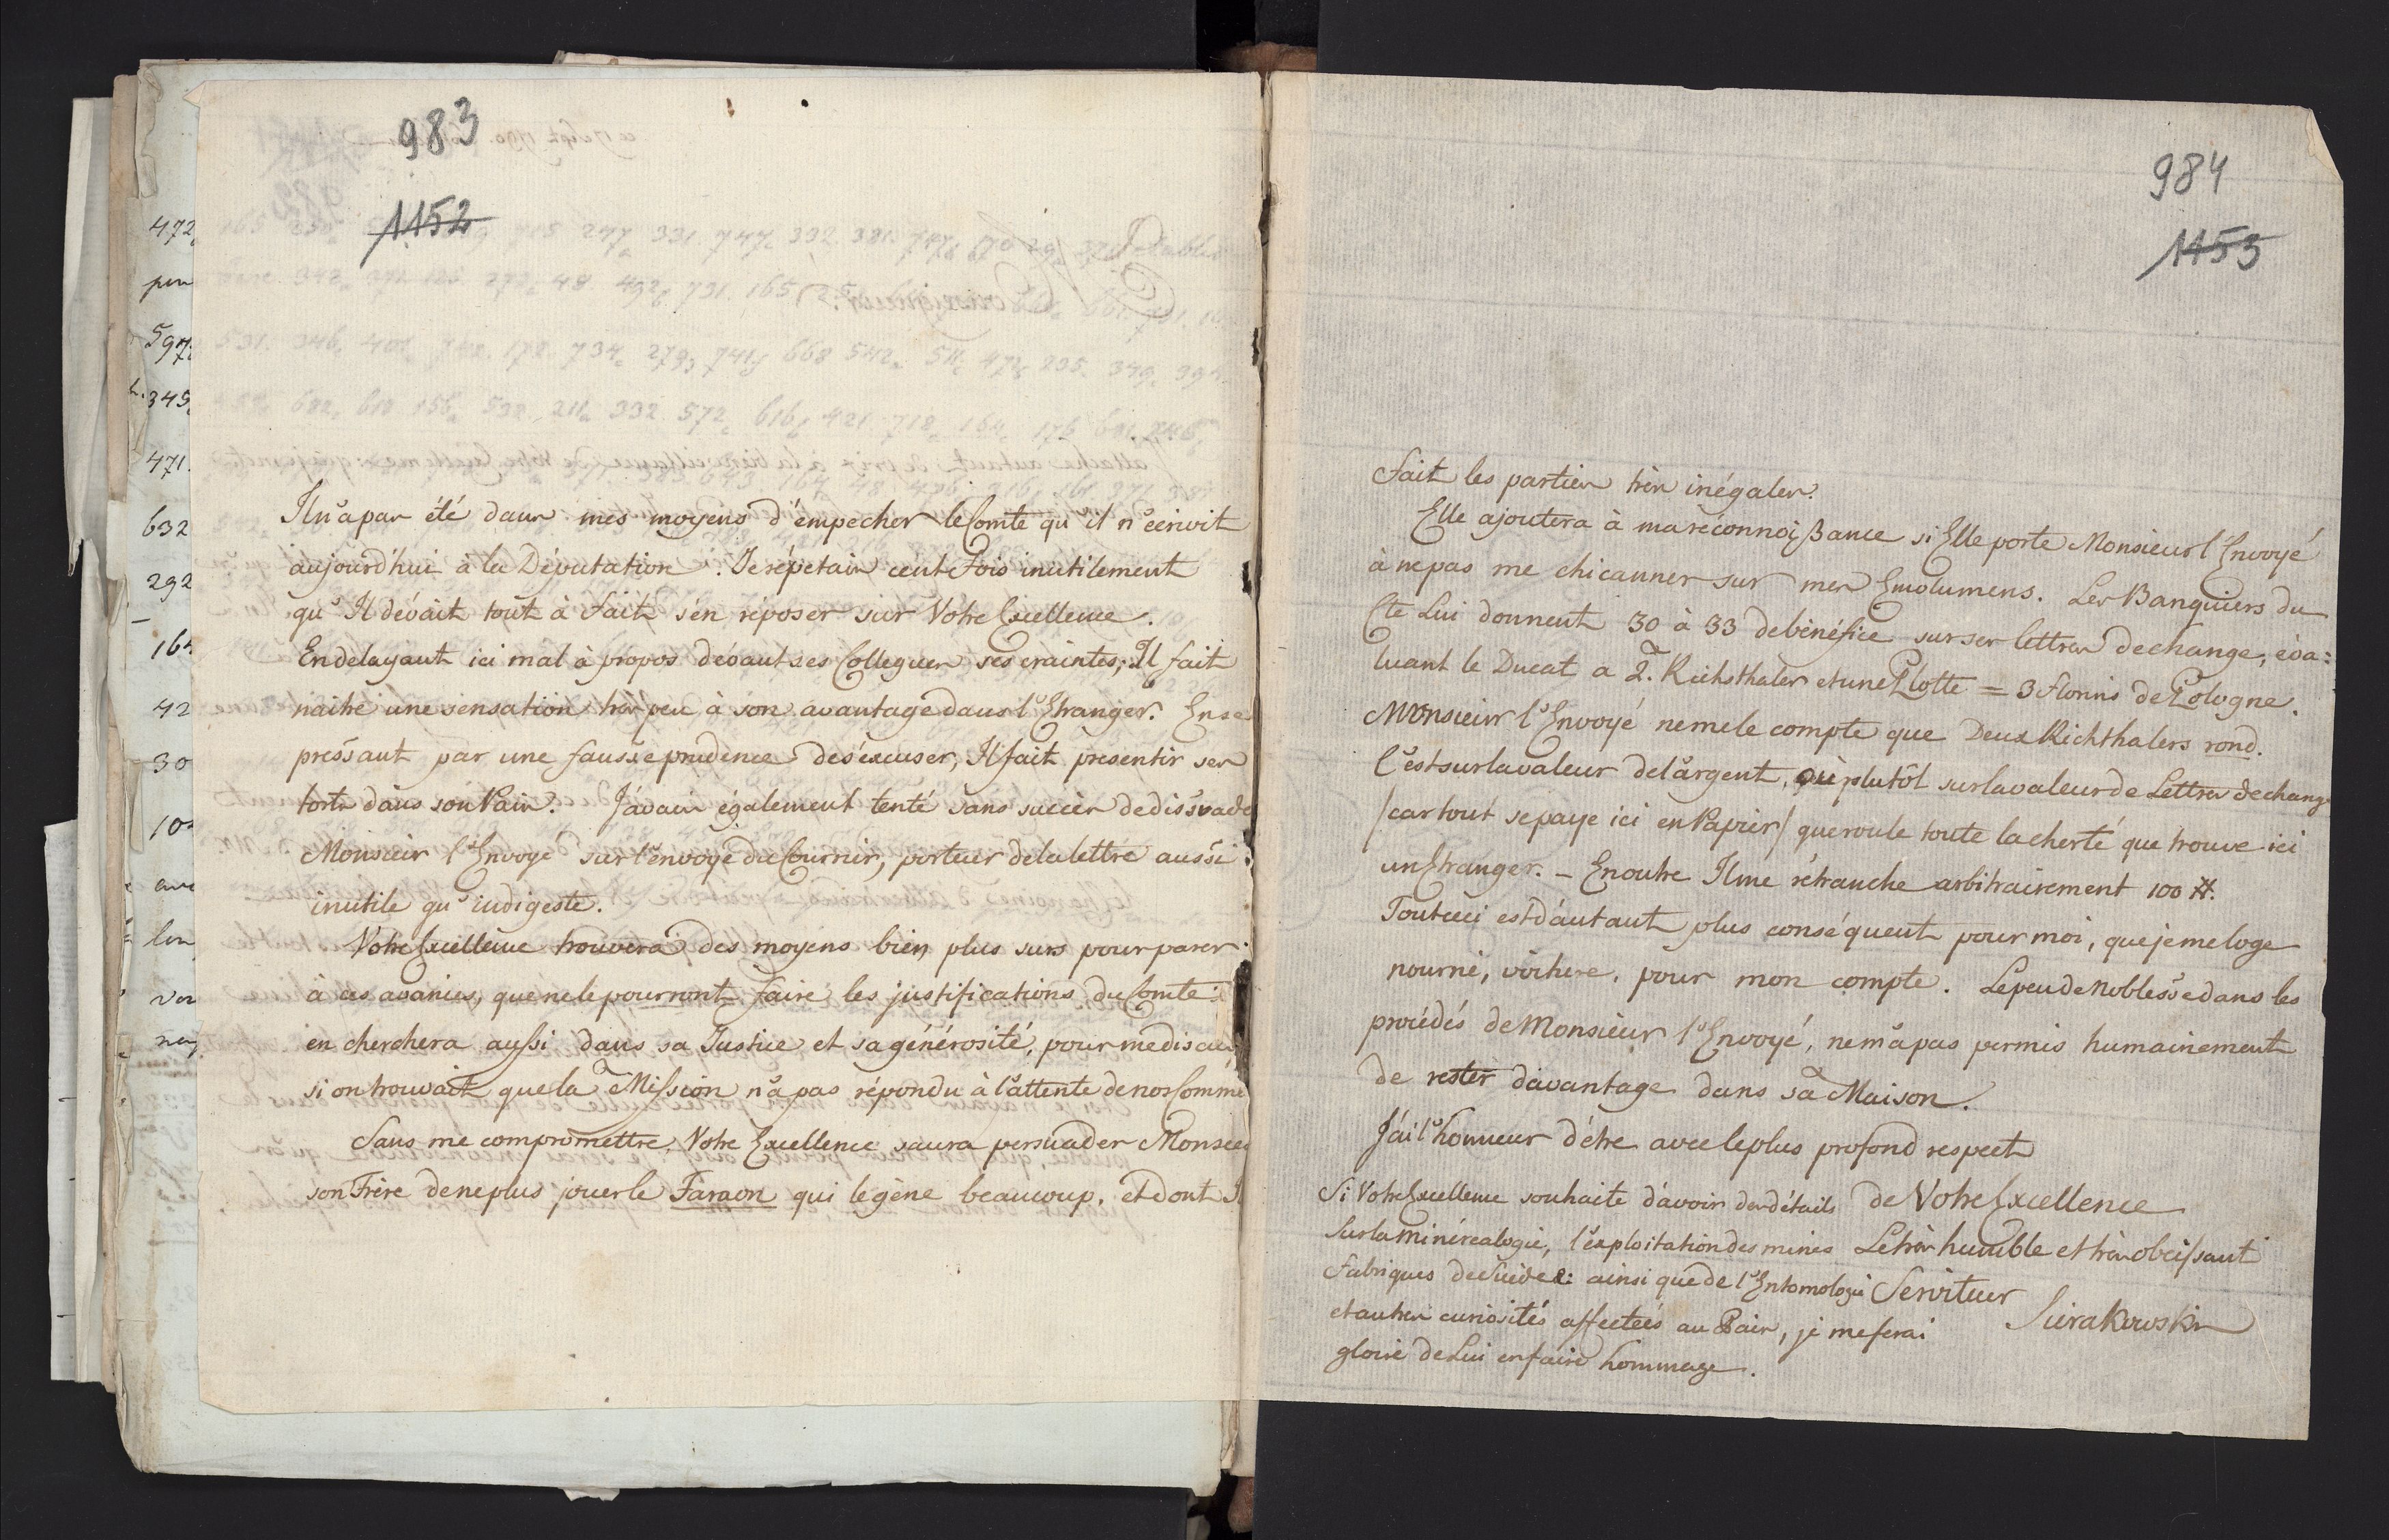 983
1152
Il n'a pas été dans mes moyens d'empecher le Comte qu'il n'ecrivit
aujourd'hui à la Députation. Je répetais cent Fois inutilement
qu'Il dévait tout à Fait s'en réposer sur Votre Excellence.
En delayant ici mal à propos dévant ses Collegues ses craintes, Il fait
naitre une sensation très peu à son avantage dans l'Etranger. En se
pressant par une fausse prudence de s'éxcuser, Il fait presentir ses
torts dans son Païs. J'avais également tenté sans succès de dissvade
Monsieur l'Envoyé sur l'envoyé du Courrier, porteur de la lettre aussi
inutile qu'indigeste.
Votre Excellence trouvera des moyens bien plus surs pour parer
à ces avanies, que ne le pourront faire les justifications du Comte:
en cherchera aussi dans sa Justice et sa générosité, pour me discul
si on trouvait que la Mission n'a pas répondu à l'attente de nos Comme
Sans me compromettre, Votre Excellence saura persuader Monsie
son Frère de ne plus jouer le Faraon qui le gène beaucoup, et dont
984
1153
Fait les parties très inégales.
Elle ajoutera à ma réconnoißance si Elle porte Monsieur l'Envoyé
à ne pas me chicanner sur mes Emolumens. Les Banquiers du
Cte Lui donnent 30 à 33 de bénéfice sur ses lettres de change, éva:
luant le Ducat a 2. Richsthaler et une Plotte = 3 florins de Pologne.
Monsieur l'Envoyé ne me le compte que Deux Richthalers rond.
C'est sur la valeur de l'argent, ou plutôt sur la valeur de Lettres de change
/car tout se paye ici en Papier/ que roule toute la cherté que trouve ici
un Etranger. – En outre Il me rétranche arbitrairement 100 #.
Tout ceci est d'autant plus conséquent pour moi, que je me loge
nourrie, voiture, pour mon compte. Le peu de Noblesse dans les
procédés de Monsieur l'Envoyé, ne m'a pas permis humainement
de rester davantage dans sa Maison.
J'ai l'honneur d'étre avec le plus profond respect
de Votre Excellence
Le très humble et très obeissant
Serviteur
Sierakowski
Si Votre Excellence souhaite d'avoir des détails
sur la minéréalogie, l'exploitation des mines
fabriques de Suède: ainsi que de l'Entomologie
et autres curiosités affectées au Païs, je me ferai
gloire de Lui en faire hommage.
472
pou
597
345
471.
632
292
164
42
30
10